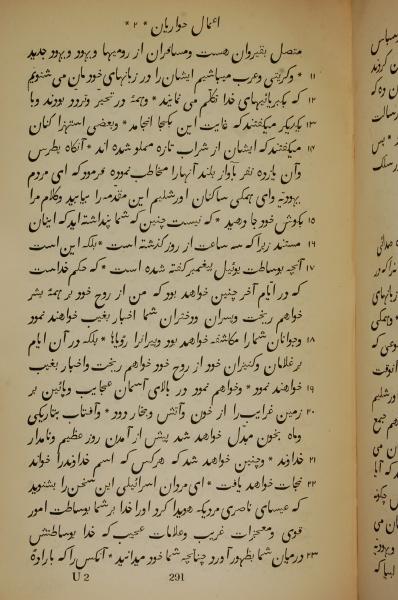 اعمال حواریان * ۲ *
متصل بقیروان هست و مسافران از رومیها و یهود و یهود جدید
۱۱ * و کریتی و عرب میباشیم ایشان را در زبانهای خودمان می شنویم
۱۲ که بکبریائیهای خدا تکلّم می نمایند * و همهٔ در تحیر و تردد بودند و با
۱۳ یکدیکر میکفتند که غایت این بکجا انجامد * و بعضی استهزا کنان
۱۴ میکفتند که ایشان از شراب تازه مملو شده اند * آنکاه پطرس
وآن یازده نفر بآواز بلند آنها را مخاطب نموده فرمود که ای مردم
یهودیّه وای همکی ساکنان اورشلیم این مقدّمه را بیابید وکلام مرا
۱۵ بکوش خود جا دهید * که نیست چنین که شما پنداشته اید که اینان
۱۶ مستند زیرا که سه ساعت از روز گذشته است * بلکه این است
۱۷ آنچه بوساطت یوئیل پیغمبر کفته شده است * که حکم خداست
که در ایّام آخر چنین خواهد بود که من از روح خود بر همهٔ بشر
خواهم ریخت و پسران ودختران شما اخبار بغیب خواهند نمود
۱۸ وجوانان شما را مکاشفه خواهد بود و پیران را رؤیاها * بلکه در آن ایّام
بر غلامان وکنیزان خود از روح خود خواهم ریخت واخبار بغیب
۱۹ خواهند نمود * وخواهم نمود در بالای آسمان عجایب و پائین بر
۲۰ زمین غرایب را از خون وآتش وبخار دود * وآفتاب بتاریکی
وماه بخون مبدّل خواهد شد پیش از آمدن روز عظیم ونامدار
۲۱ خداوند * وچنین خواهد شد که هرکس که اسم خداوند را خواند
۲۲ نجات خواهد یافت * ای مردان اسرائیلی این سخن را بشنوید
که عیسای ناصری مردیکه هویدا کرد اورا خدا بر شما بوساطت امور
قوی ومعجزات غریب وعلامات عجیب که خدا بوساطتش
۲۳ درمیان شما بظهور آورد چنانچه شما خود میدانید * آنکس را که بارادهٔ
U 2 291